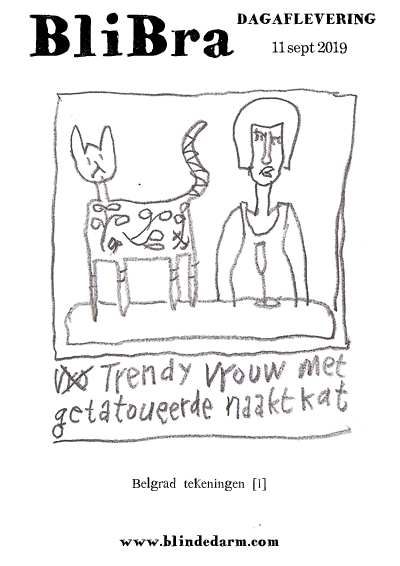 BliBra
DAGAFLEVERING
11 sept 2019
Trendy vrouw met
getatoueerde naaktkat
Belgrad tekeningen [1]
www.blindedarm.com